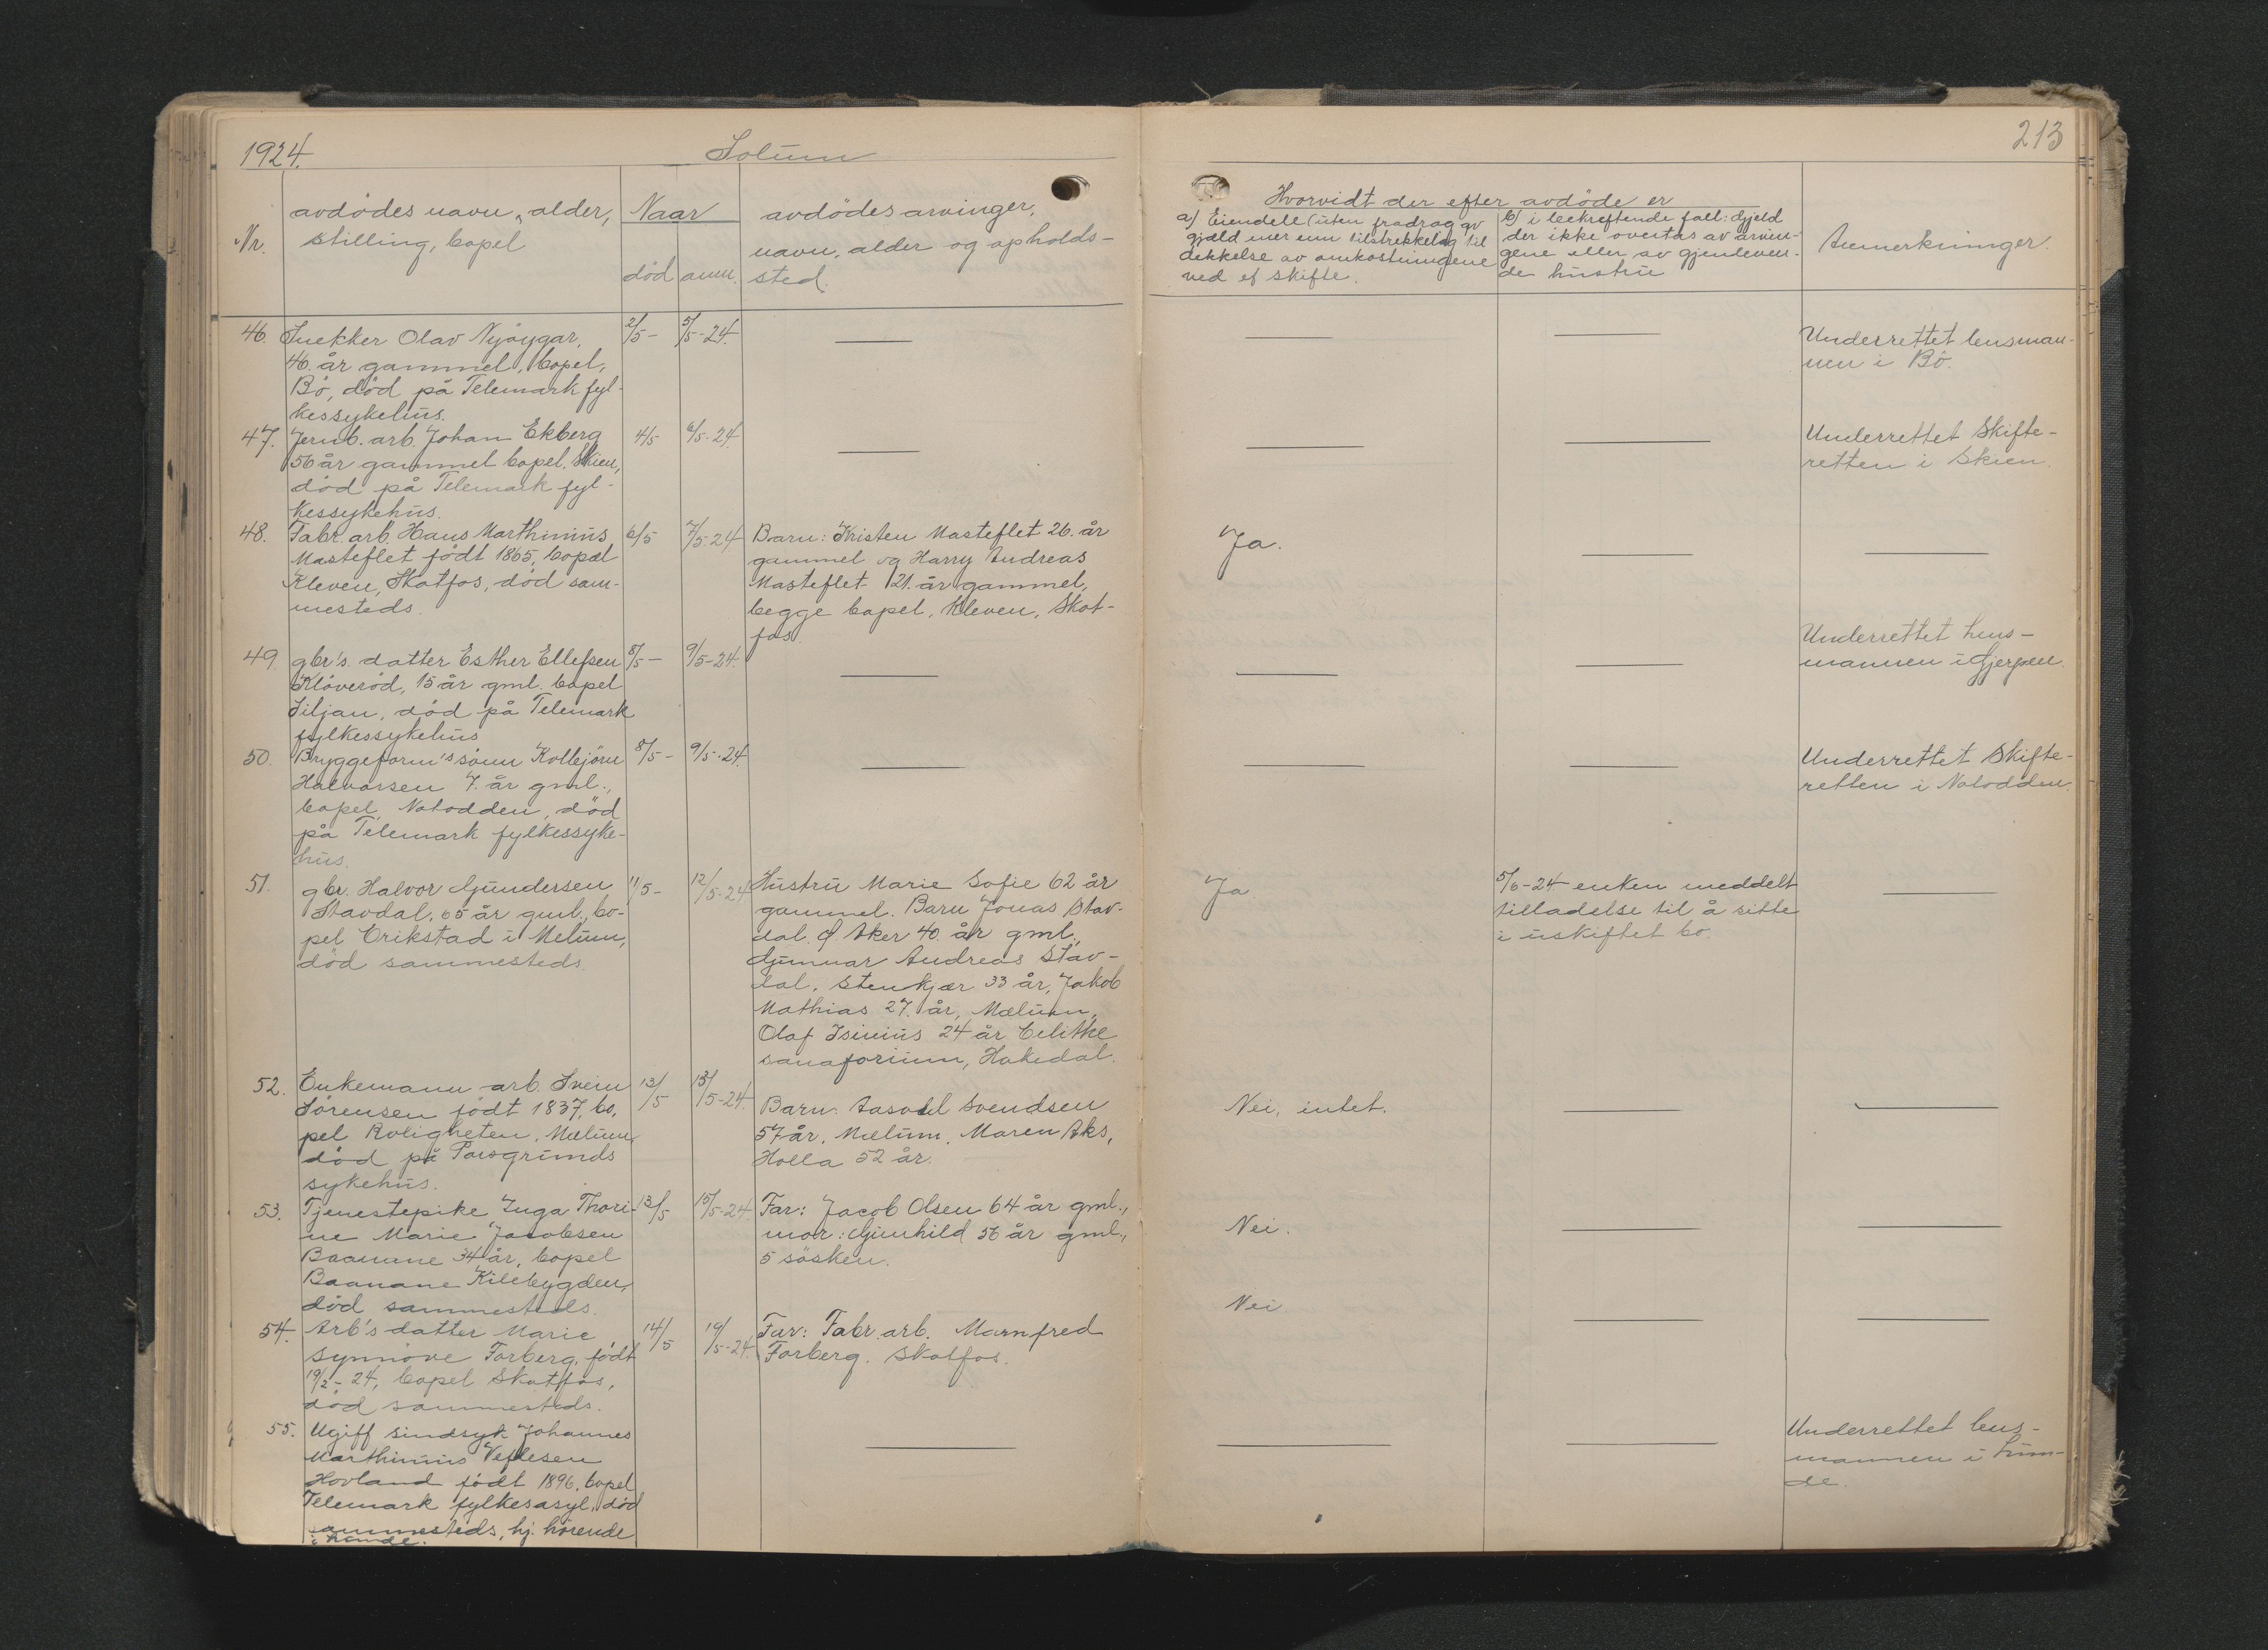 1924.
Solum
213
Nr.
avdødes navn, alder,
stilling, bopel
Naar
død anm.
avdødes arvinger,
navn, alder og opholds-
sted.
Hvorvidt der efter avdøde er
a) Eiendele (uten fradrag av
gjæld mer enn tilstrekkelig til
dekkelse av omkostningene
ved et skifte.
b) i bekreftende fall: Gjeld
der ikke overtas av arvin-
gene eller av gjenleven-
de hustru
Anmerkninger.
46. Snekker Olav Nyøygar, 2/5 - 5/5-24.
46 år gammel, bopel,
Bø, død på Telemark fyl-
kessykehus.
Underrettet lensman-
nen i Bø.
47. Jernb. arb. Johan Ekberg 4/5 6/5-24
56 år gammel bopel. Skien,
død på Telemark fyl-
kessykehus.
Underrettet Skifte-
retten i Skien.
48. Fabr. arb. Hans Marthinius 6/5 7/5-24
Masteflet født 1865, bopæl
Kleven, Skotfos, død sam-
mesteds.
Barn: Kristen Masteflet 26. år
gammel og Harry Andreas
Masteflet 21. år gammel,
begge bopel, Kleven, Skot-
fos.
Ja.
49. gbr's. datter Esther Ellefsen 8/5 - 9/5-24.
Kløverød, 15 år gml. bopel
Siljan, død på Telemark
fylkessykehus
Underrettet lens-
mannen i Gjerpen.
50. Bryggeform's sønn Kollejørn 8/5 - 9/5-24.
Halvorsen 7. år gml.,
bopel, Notodden, død
på Telemark fylkessyke-
hus.
Underrettet Skifte-
retten i Notodden.
51. gbr. Halvor Gundersen 11/5 - 12/5-24
Stavdal, 65 år gml., bo-
pel Erikstad i Melum,
død sammesteds.
Hustru Marie Sofie 62 år
gammel. Barn Jonas Stav-
dal. Ø. Aker 40. år gml.,
Gunnar Andreas Stav-
dal. Stenkjær 33 år, Jakob
Mathias 27. år, Mælum,
Olaf Isinius 24 år
sanatorium, Hakedal.
Ja
5/6-24 enken meddelt
tilladelse til å sitte
i uskiftet bo.
52. Enkemann arb. Svein 13/5 13/5-24.
Sørensen født 1837, bo,
pel Roligheten, Mælum,
død på Porsgrunds
sykehus.
Barn: Svendsen
57 år, Mælum, Maren Aks,
Holla 52 år.
Nei, intet.
53. Tjenestepike Inga Thori- 13/5 15/5-24.
ne Marie Jacobsen
Baanane 34 år, bopel
Baanane Kilebygden,
død sammesteds.
Far: Jacob Olsen 64 år gml.,
mor: Gunhild 56 år gml.,
5 søsken.
Nei.
54. Arb's datter Marie 14/5 19/5-24.
Synnøve Forberg, født
19/2-24, bopel Skotfos,
død sammesteds.
Far: Fabr. arb. Marnfred
Forberg. Skotfos.
Nei
55. Ugift sindsyk Johannes
Marthinius Veflesen
Hovland født 1896, bopel
Telemark fylkesasyl, død
sammesteds, hj. hørende
i Lunde.
Underrettet lens-
mannen i Lun-
de.